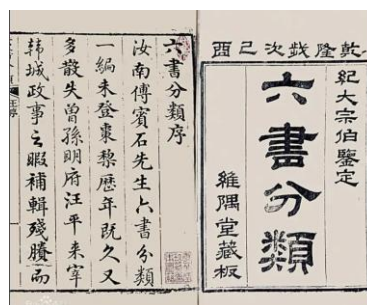 乾隆歲次己酉
紀大宗伯鑒定
六書分類
維隅堂藏板
六書分類序
汝南傅賓石先生六書分類
一編未登棗棃歷年既久又
多散失曾孫明府汪平來宰
韓城政事之暇補輯殘牘而